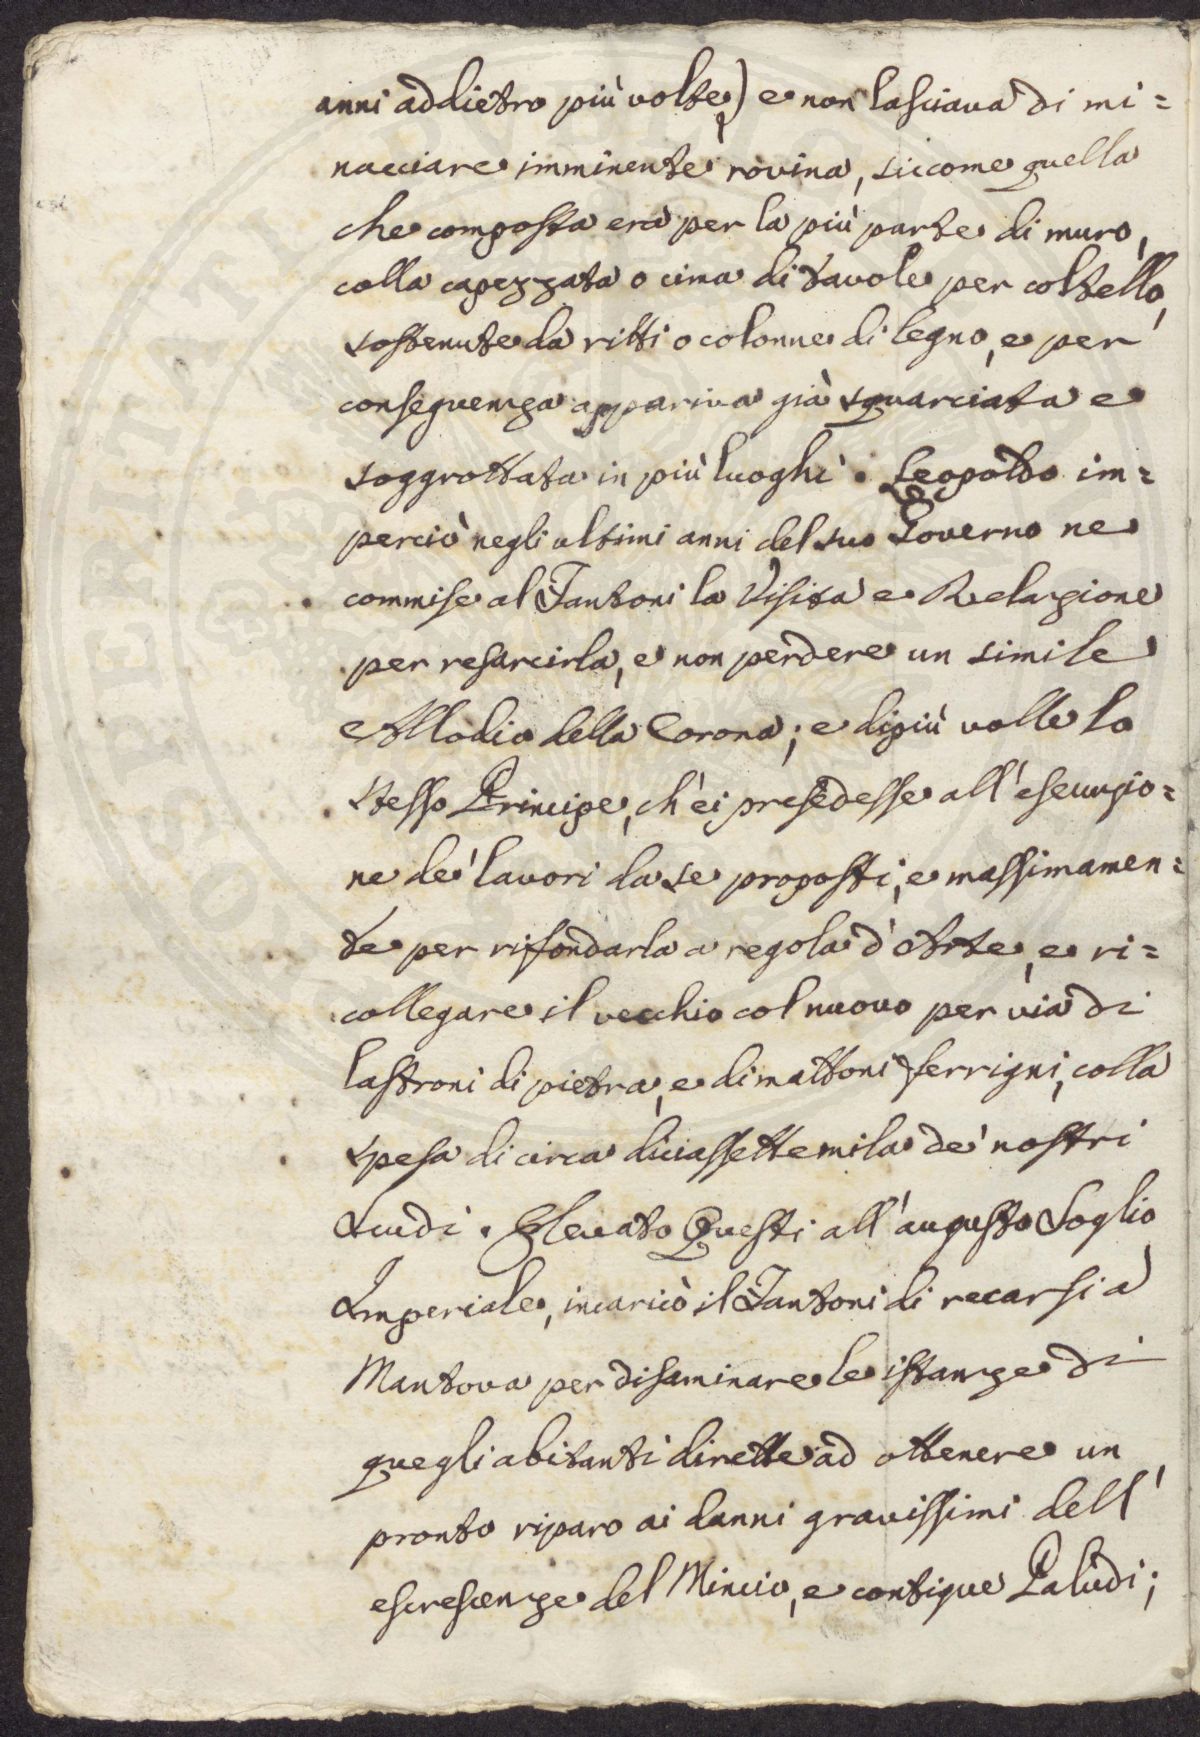 anni addietro più volte) e non lasciava di mi=
nacciare imminente rovina, siccome quella
che composta era per la più parte di muro,
colla capezzata o cima di tavole per coltello,
sostenute da ritti o colonne di legno, e per
conseguenza appariva già squarciata e
soggrottata in più luoghi. Leopoldo im=
perciò negli ultimi anni del suo Governo ne
commise al Fantoni la Visita e Relazione
per resarcirla, e non perdere un simile
Allodio della Corona; e di più volle lo
stesso Principe, ch'ei presedesse all'esecuzio=
ne de' lavori da se proposti, e massimamen=
te per rifondarla a regola d'Arte, e ri=
collegare il vecchio col nuovo per via di
lastroni di pietra, e di mattoni ferrigni, colla
spesa di circa diciassettemila de' nostri
Scudi. Elevato Questi all'augusto Soglio
Imperiale, incaricò il Fantoni di recarsi a
Mantova per disaminare le istanze di
quegli abitanti dirette ad ottenere un
pronto riparo ai danni gravissimi dell'
escrescenze del Mincio, e contigue Paludi;